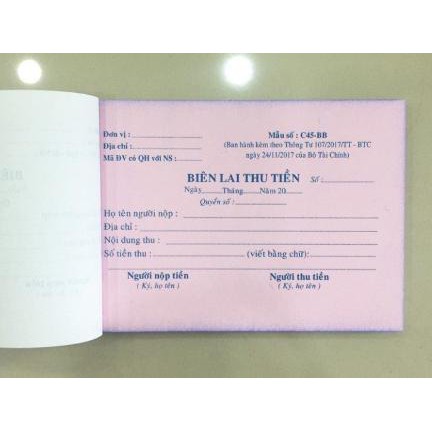 Đơn vị :
Mẫu số : C45-BB
Địa chỉ :
(Ban hành kèm theo Thông Tư 107/2017/TT - BTC
Mã ĐV có QH với NS :
ngày 24/11/2017 của Bộ Tài Chính)
BIÊN LAI THU TIỀN Số :
Ngày Tháng Năm 20
Quyển số :
Họ tên người nộp :
Địa chỉ :
Nội dung thu :
Số tiền thu : (viết bằng chữ):
Người nộp tiền Người thu tiền
( Ký, họ tên ) ( Ký, họ tên )